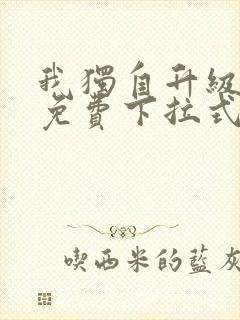 我獨自升級
免費下拉式
喫西米的藍灰